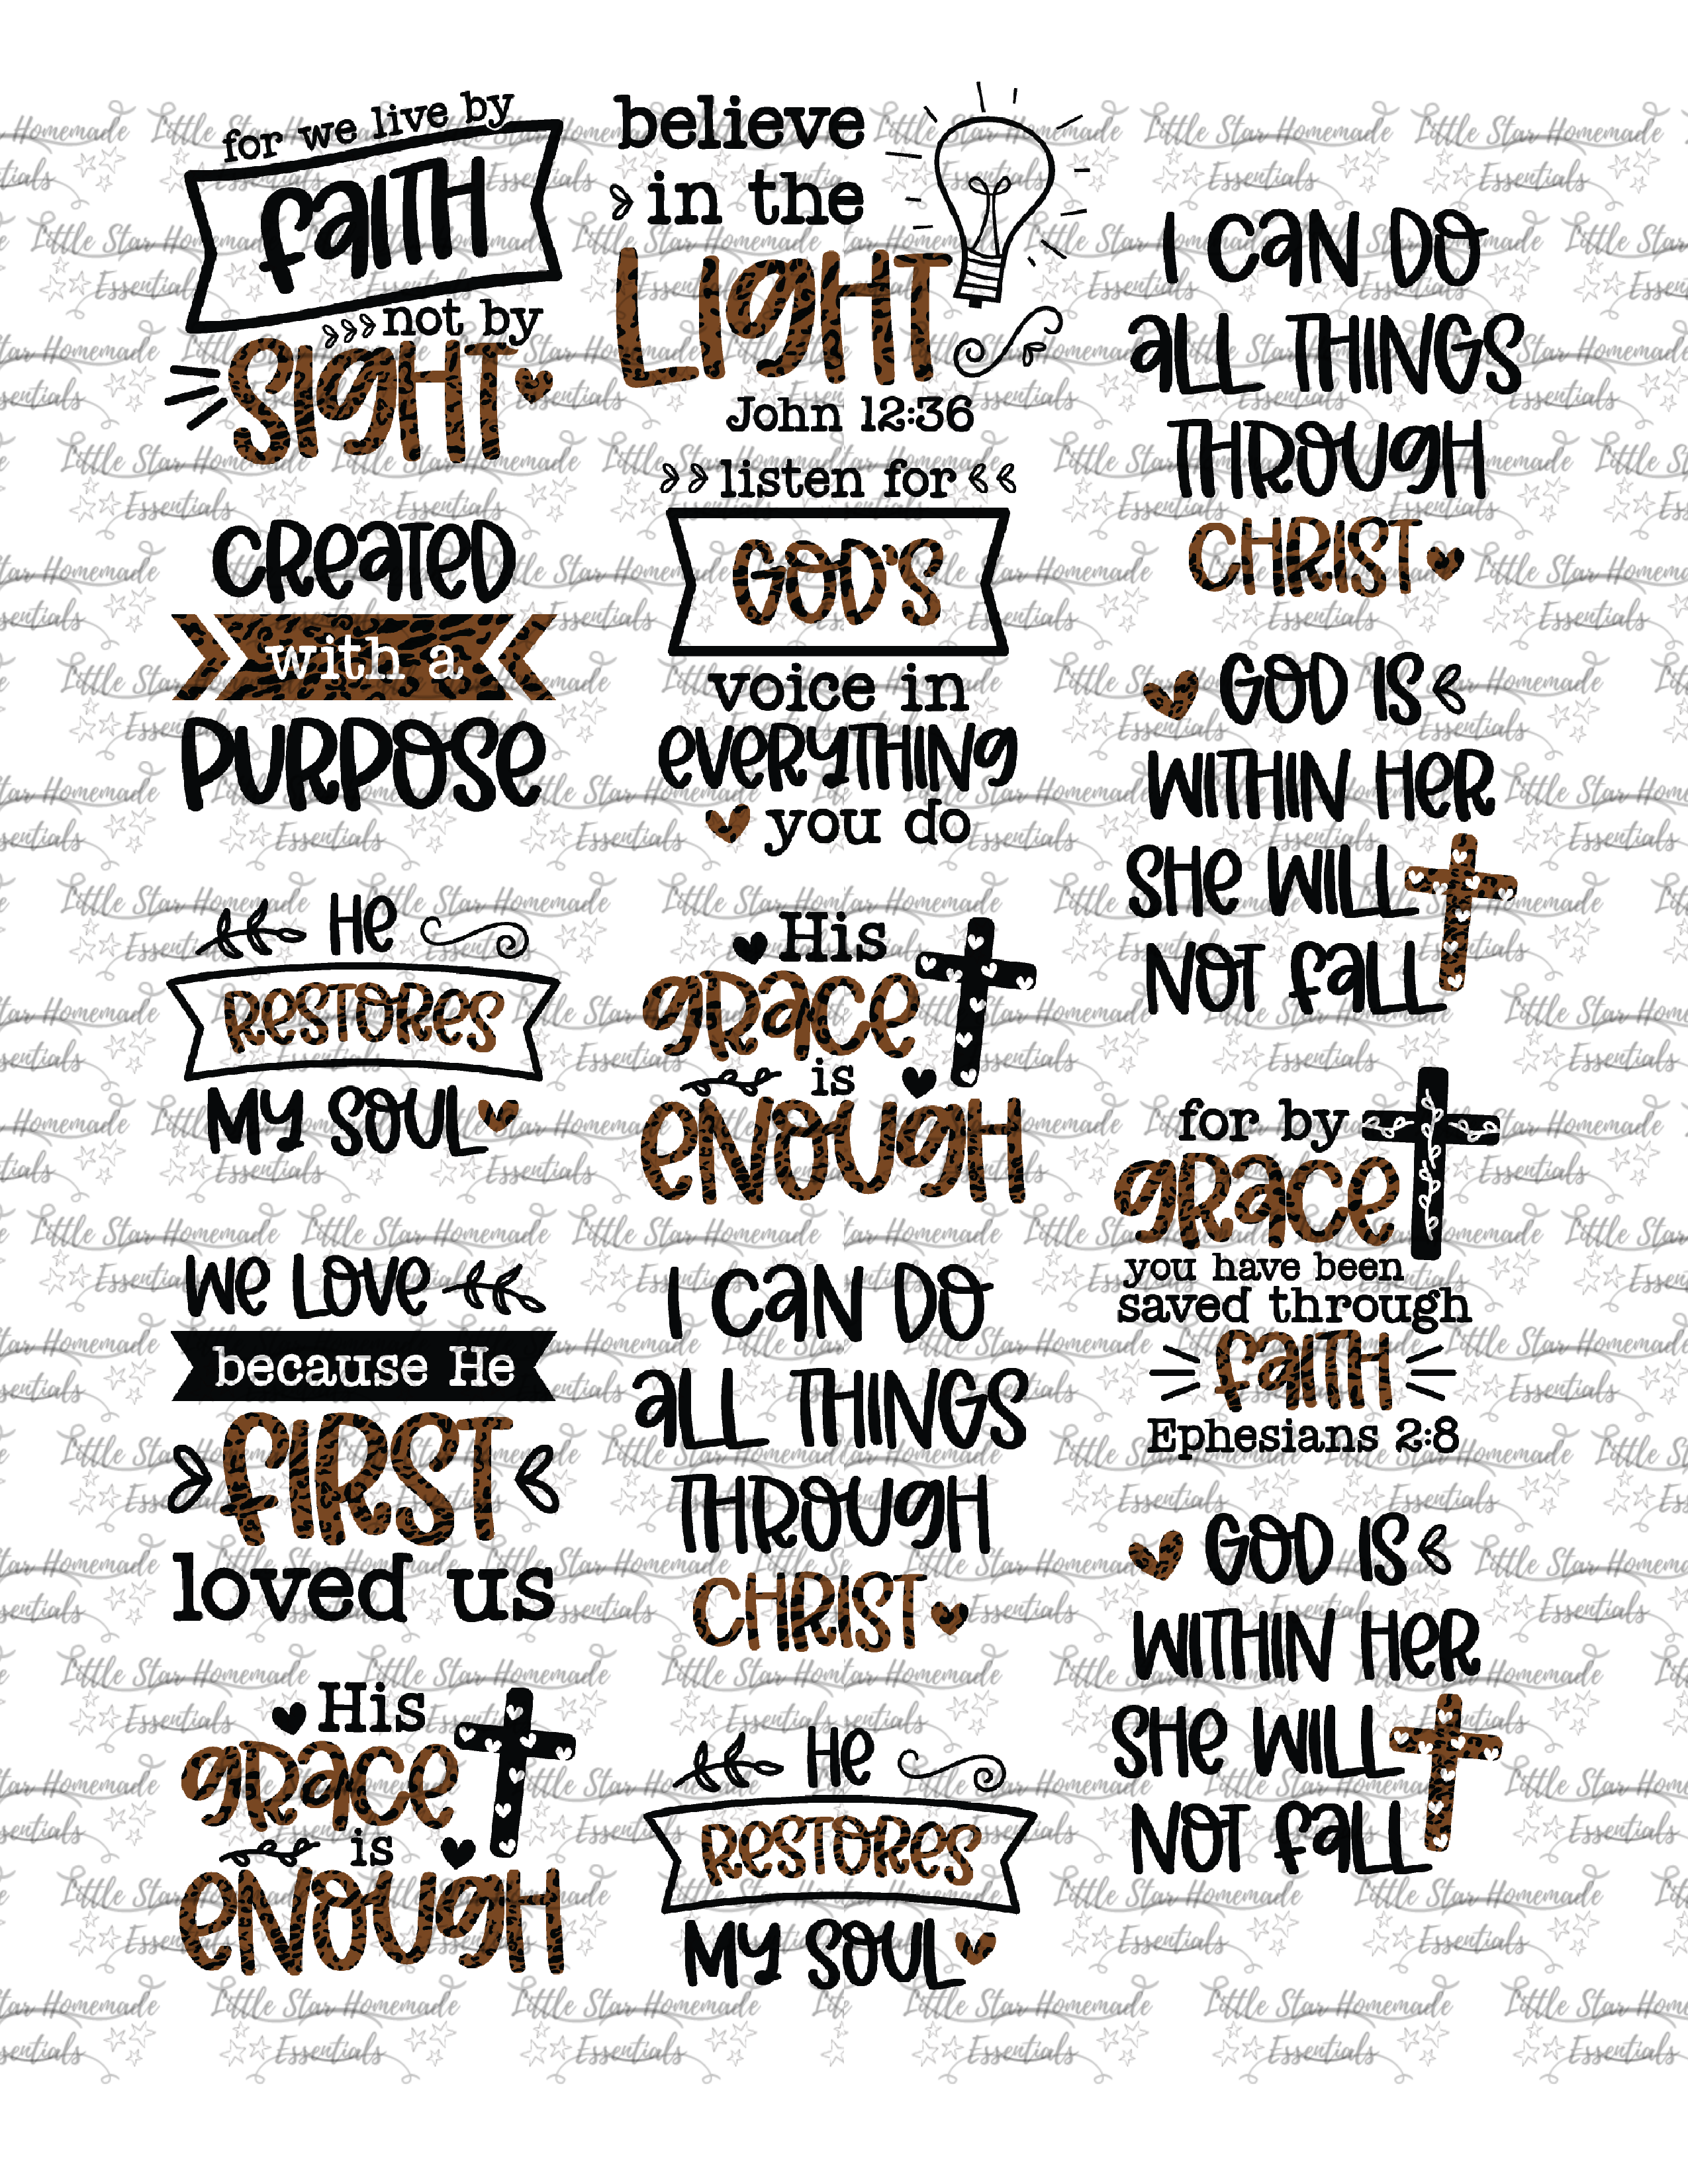 for we live by
faith
not by
SIGHT
CReateD
with a
PURPOSe
He
ReSTOReS
MY SOUL
We LOVe
because He
fIRST
loved us
His
gRace
is
eNOUgH
believe
in the
LIgHT
John 12:36
listen for
GOD'S
voice in
eveRYTHINg
you do
His
gRace
is
eNOUgH
I CaN DO
aLL THINGS
THROUgH
CHRIST
He
ReSTOReS
MY SOUL
I CaN DO
aLL THINGS
THROUgH
CHRIST
GOD IS
WITHIN HeR
SHe WILL
NOT faLL
for by
gRace
you have been
saved through
faITH
Ephesians 2:8
GOD IS
WITHIN HeR
SHe WILL
NOT faLL
Little Star Homemade
Essentials